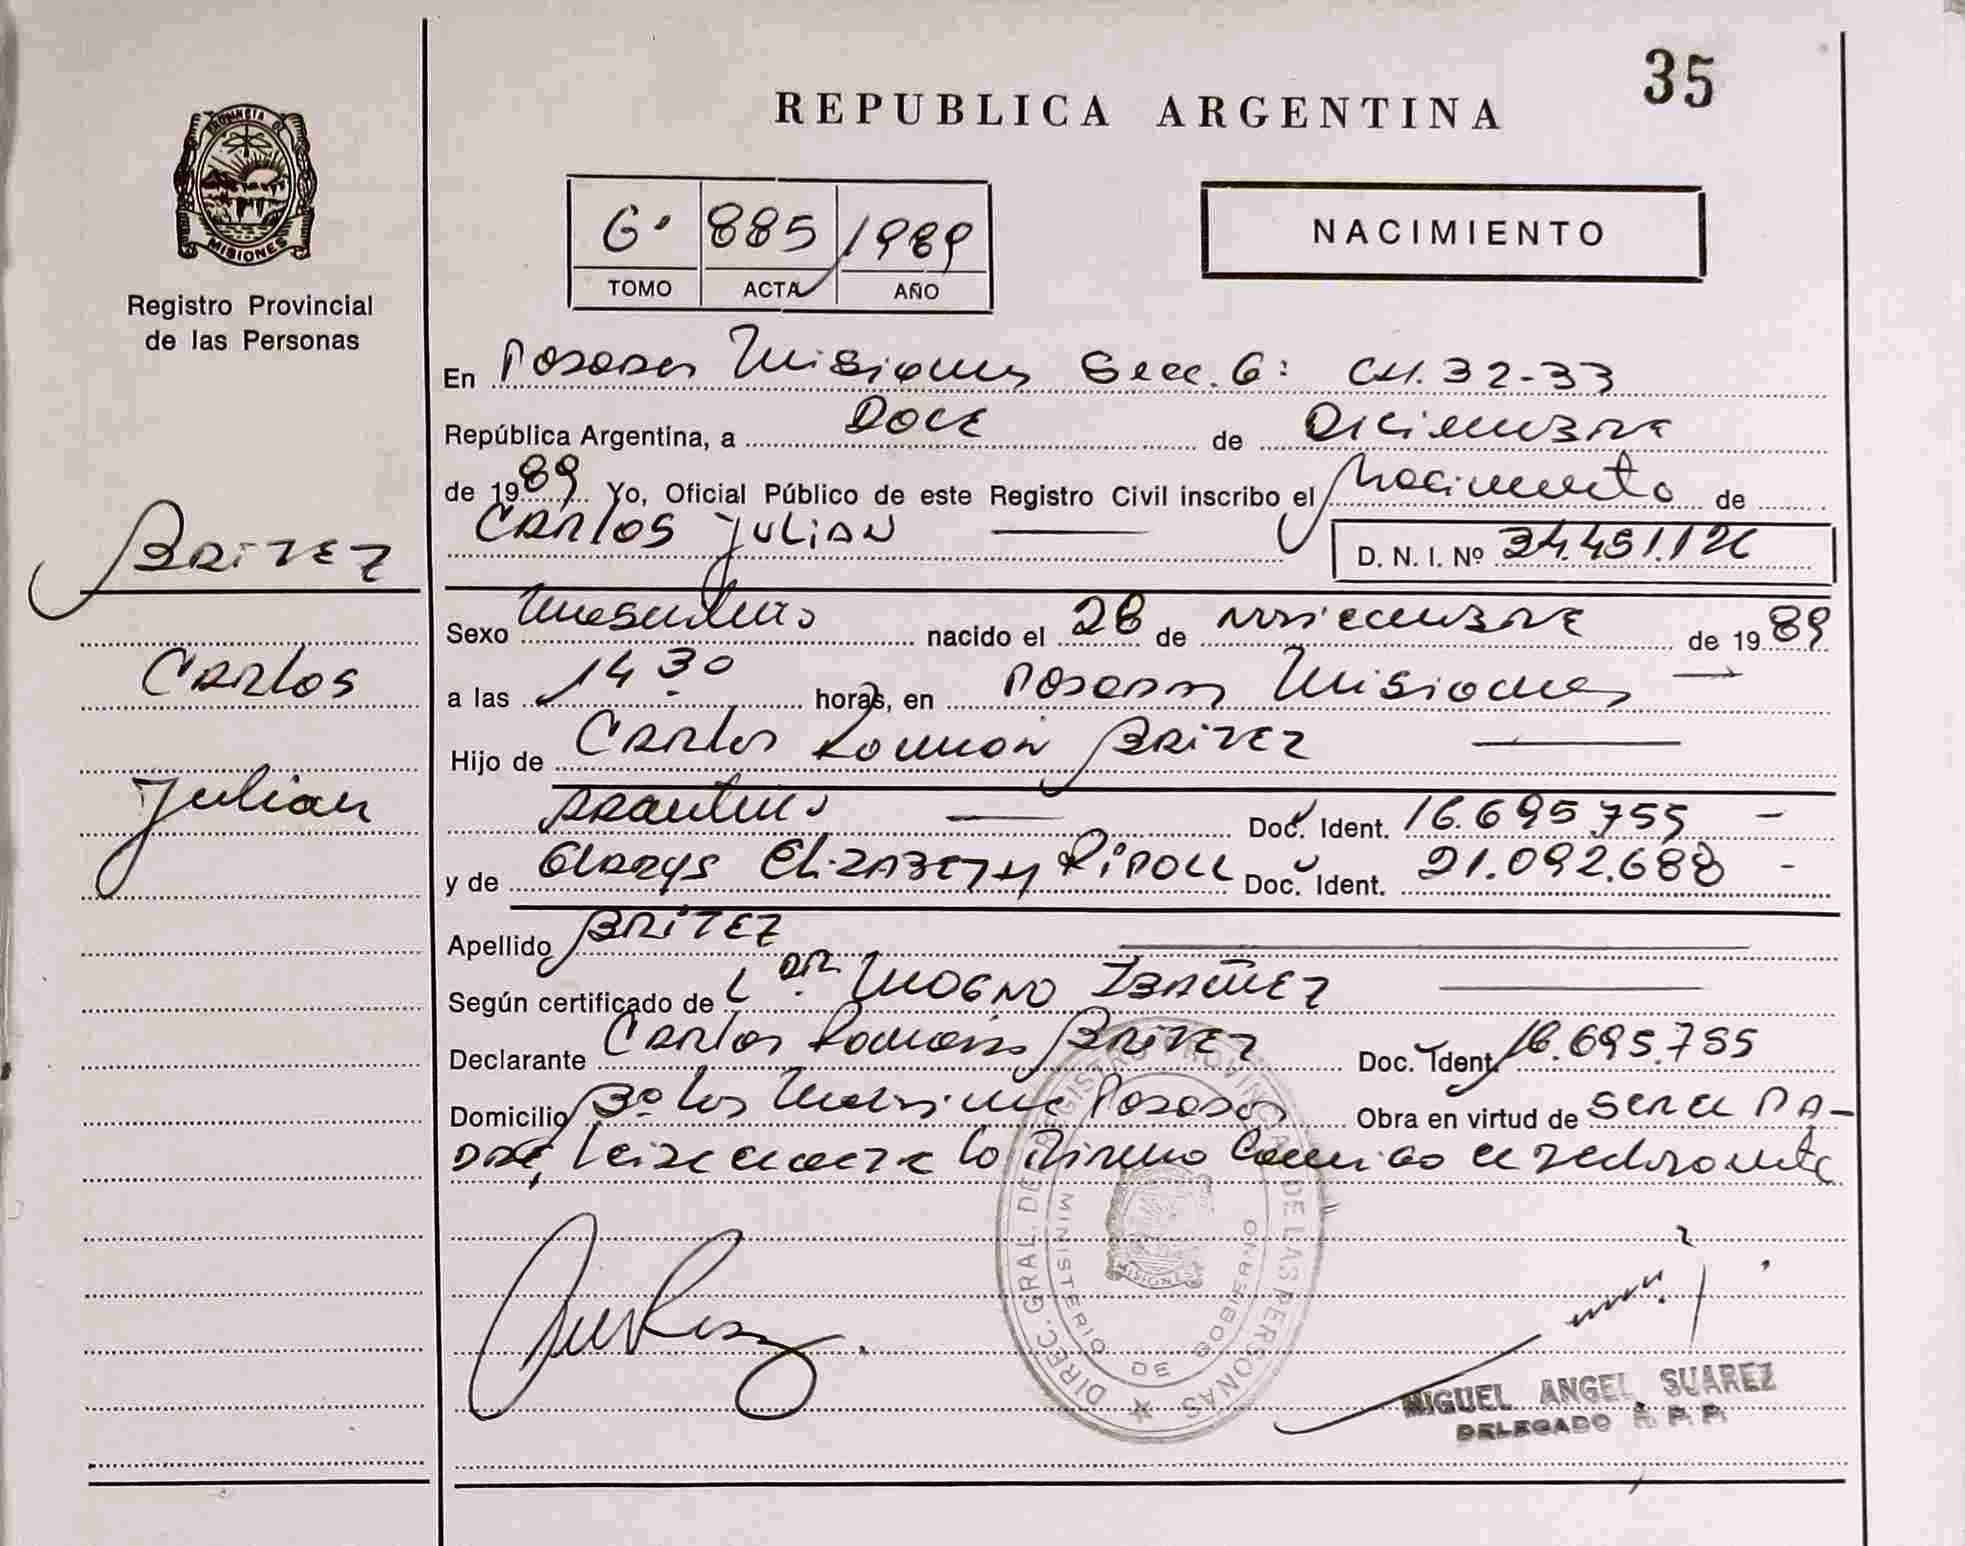 35
REPUBLICA ARGENTINA
PROVINCIA DE
MISIONES
Registro Provincial
de las Personas
6º 885 1989
TOMO ACTA AÑO
NACIMIENTO
En Posadas Misiones Secc. 6: CH. 32-33
República Argentina, a DOCE de Diciembre
de 1989 Yo, Oficial Público de este Registro Civil inscribo el Nacimiento de
Carlos Julian
D. N. I. Nº 34.451.126
BRITEZ
Carlos
Julian
Sexo Masculino nacido el 28 de Noviembre de 1989
a las 14 30 horas, en Posadas Misiones
Hijo de Carlos Ramón BRITEZ
Argentino Doc. Ident. 16.695.755 -
y de Gladys Elizabeth Ripoll Doc. Ident. 21.092.688 -
Apellido BRITEZ
Según certificado de Magno Ibañez
Declarante Carlos Ramón Britez Doc. Ident. 16.695.755
Domicilio Bº Las Posadas Obra en virtud de ser el PA-
DRE, la firma conmigo el declarante
DIREC. GRAL. DE REGISTRO PROVINCIAL DE LAS PERSONAS
MINISTERIO DE GOBIERNO
MISIONES
MIGUEL ANGEL SUAREZ
DELEGADO R. P. P.